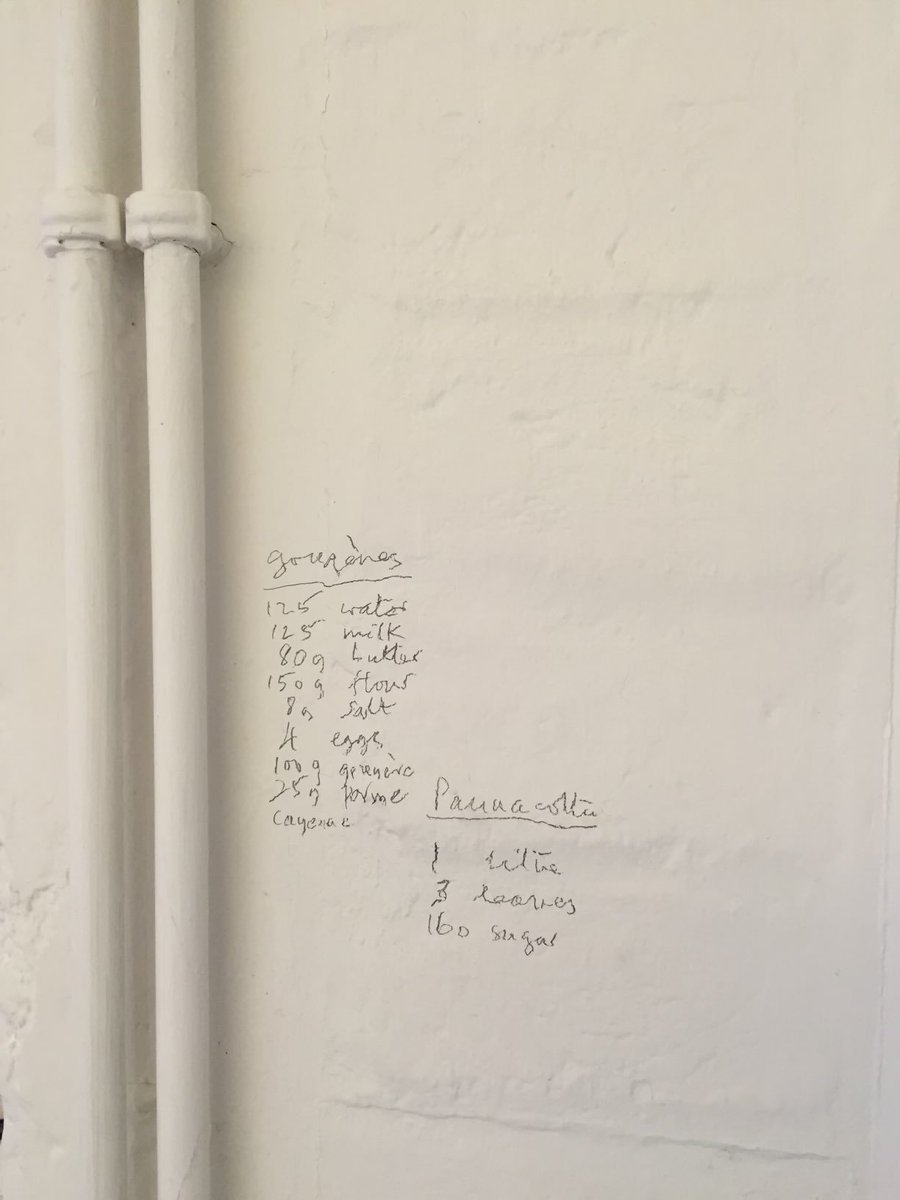 gougères
125 water
125 milk
80g butter
150g flour
8g salt
4 eggs
100g gruyère
25g parme
Cayenne
Pannacotta
1 litre
3 leaves
160 sugar